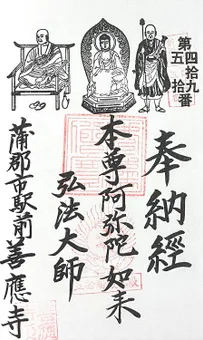 第四拾九番
五拾番
奉納經
本尊阿弥陀如来
弘法大師
蒲郡市駅前善應寺